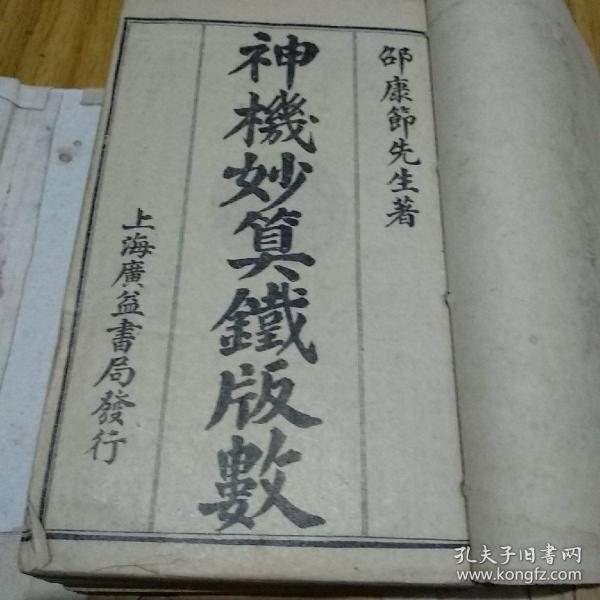 邵康節先生著
神機妙算鐵版數
上海廣益書局發行
孔夫子旧书网
www.kongfz.com